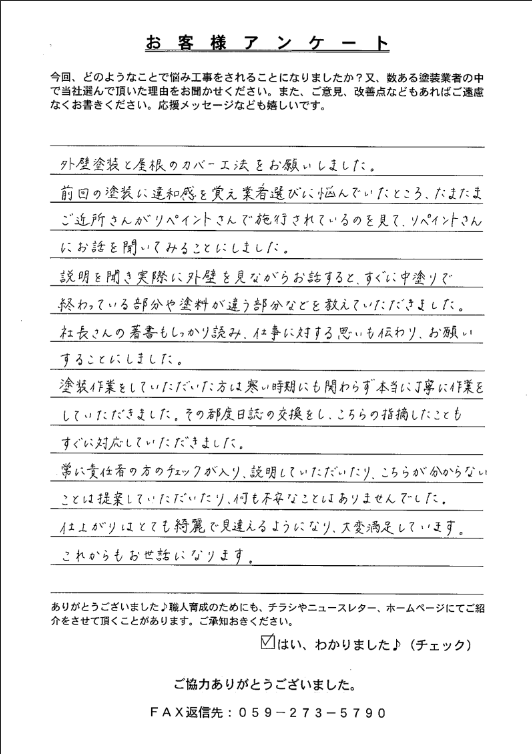 お客様アンケート
今回、どのようなことで悩み工事をされることになりましたか？又、数ある塗装業者の中
で当社選んで頂いた理由をお聞かせください。また、ご意見、改善点などもあればご遠慮
なくお書きください。応援メッセージなども嬉しいです。
外壁塗装と屋根のカバー工法をお願いしました。
前回の塗装に違和感を覚え業者選びに悩んでいたところ、たまたま
ご近所さんがリペイントさんで施行されているのを見て、リペイントさん
にお話を聞いてみることにしました。
説明を聞き実際に外壁を見ながらお話すると、すぐに中塗りで
終わっている部分や塗料が違う部分などを教えていただきました。
社長さんの著書もしっかり読み、仕事に対する思いも伝わり、お願い
することにしました。
塗装作業をしていただいた方は寒い時期にも関わらず本当に丁寧に作業を
していただきました。その都度日誌の交換をし、こちらの指摘したことも
すぐに対応していただきました。
常に責任者の方のチェックが入り、説明していただいたり、こちらが分からない
ことは提案していただいたり、何も不安なことはありませんでした。
仕上がりはとても綺麗で見違えるようになり、大変満足しています。
これからもお世話になります。
ありがとうございました♪職人育成のためにも、チラシやニュースレター、ホームページにてご紹
介をさせて頂くことがあります。ご承知おきください。
☑はい、わかりました♪（チェック）
ご協力ありがとうございました。
ＦＡＸ返信先：０５９－２７３－５７９０